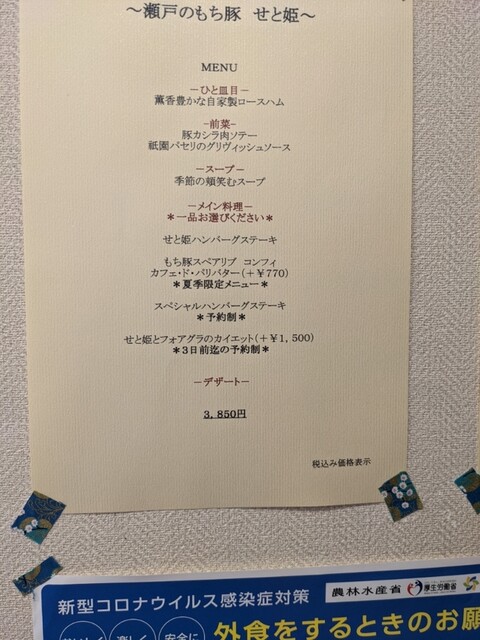 ～瀬戸のもち豚 せと姫～
MENU
－ひと皿目－
薫香豊かな自家製ロースハム
－前菜－
豚カシラ肉ソテー
祇園パセリのグリヴィッシュソース
－スープ－
季節の頬笑むスープ
－メイン料理－
＊一品お選びください＊
せと姫ハンバーグステーキ
もち豚スペアリブ コンフィ
カフェ・ド・パリバター(＋￥770)
＊夏季限定メニュー＊
スペシャルハンバーグステーキ
＊予約制＊
せと姫とフォアグラのカイエット(＋￥1,500)
＊3日前迄の予約制＊
－デザート－
3,850円
税込み価格表示
新型コロナウイルス感染症対策
農林水産省
厚生労働省
楽しく
安全に
外食をするときのお願